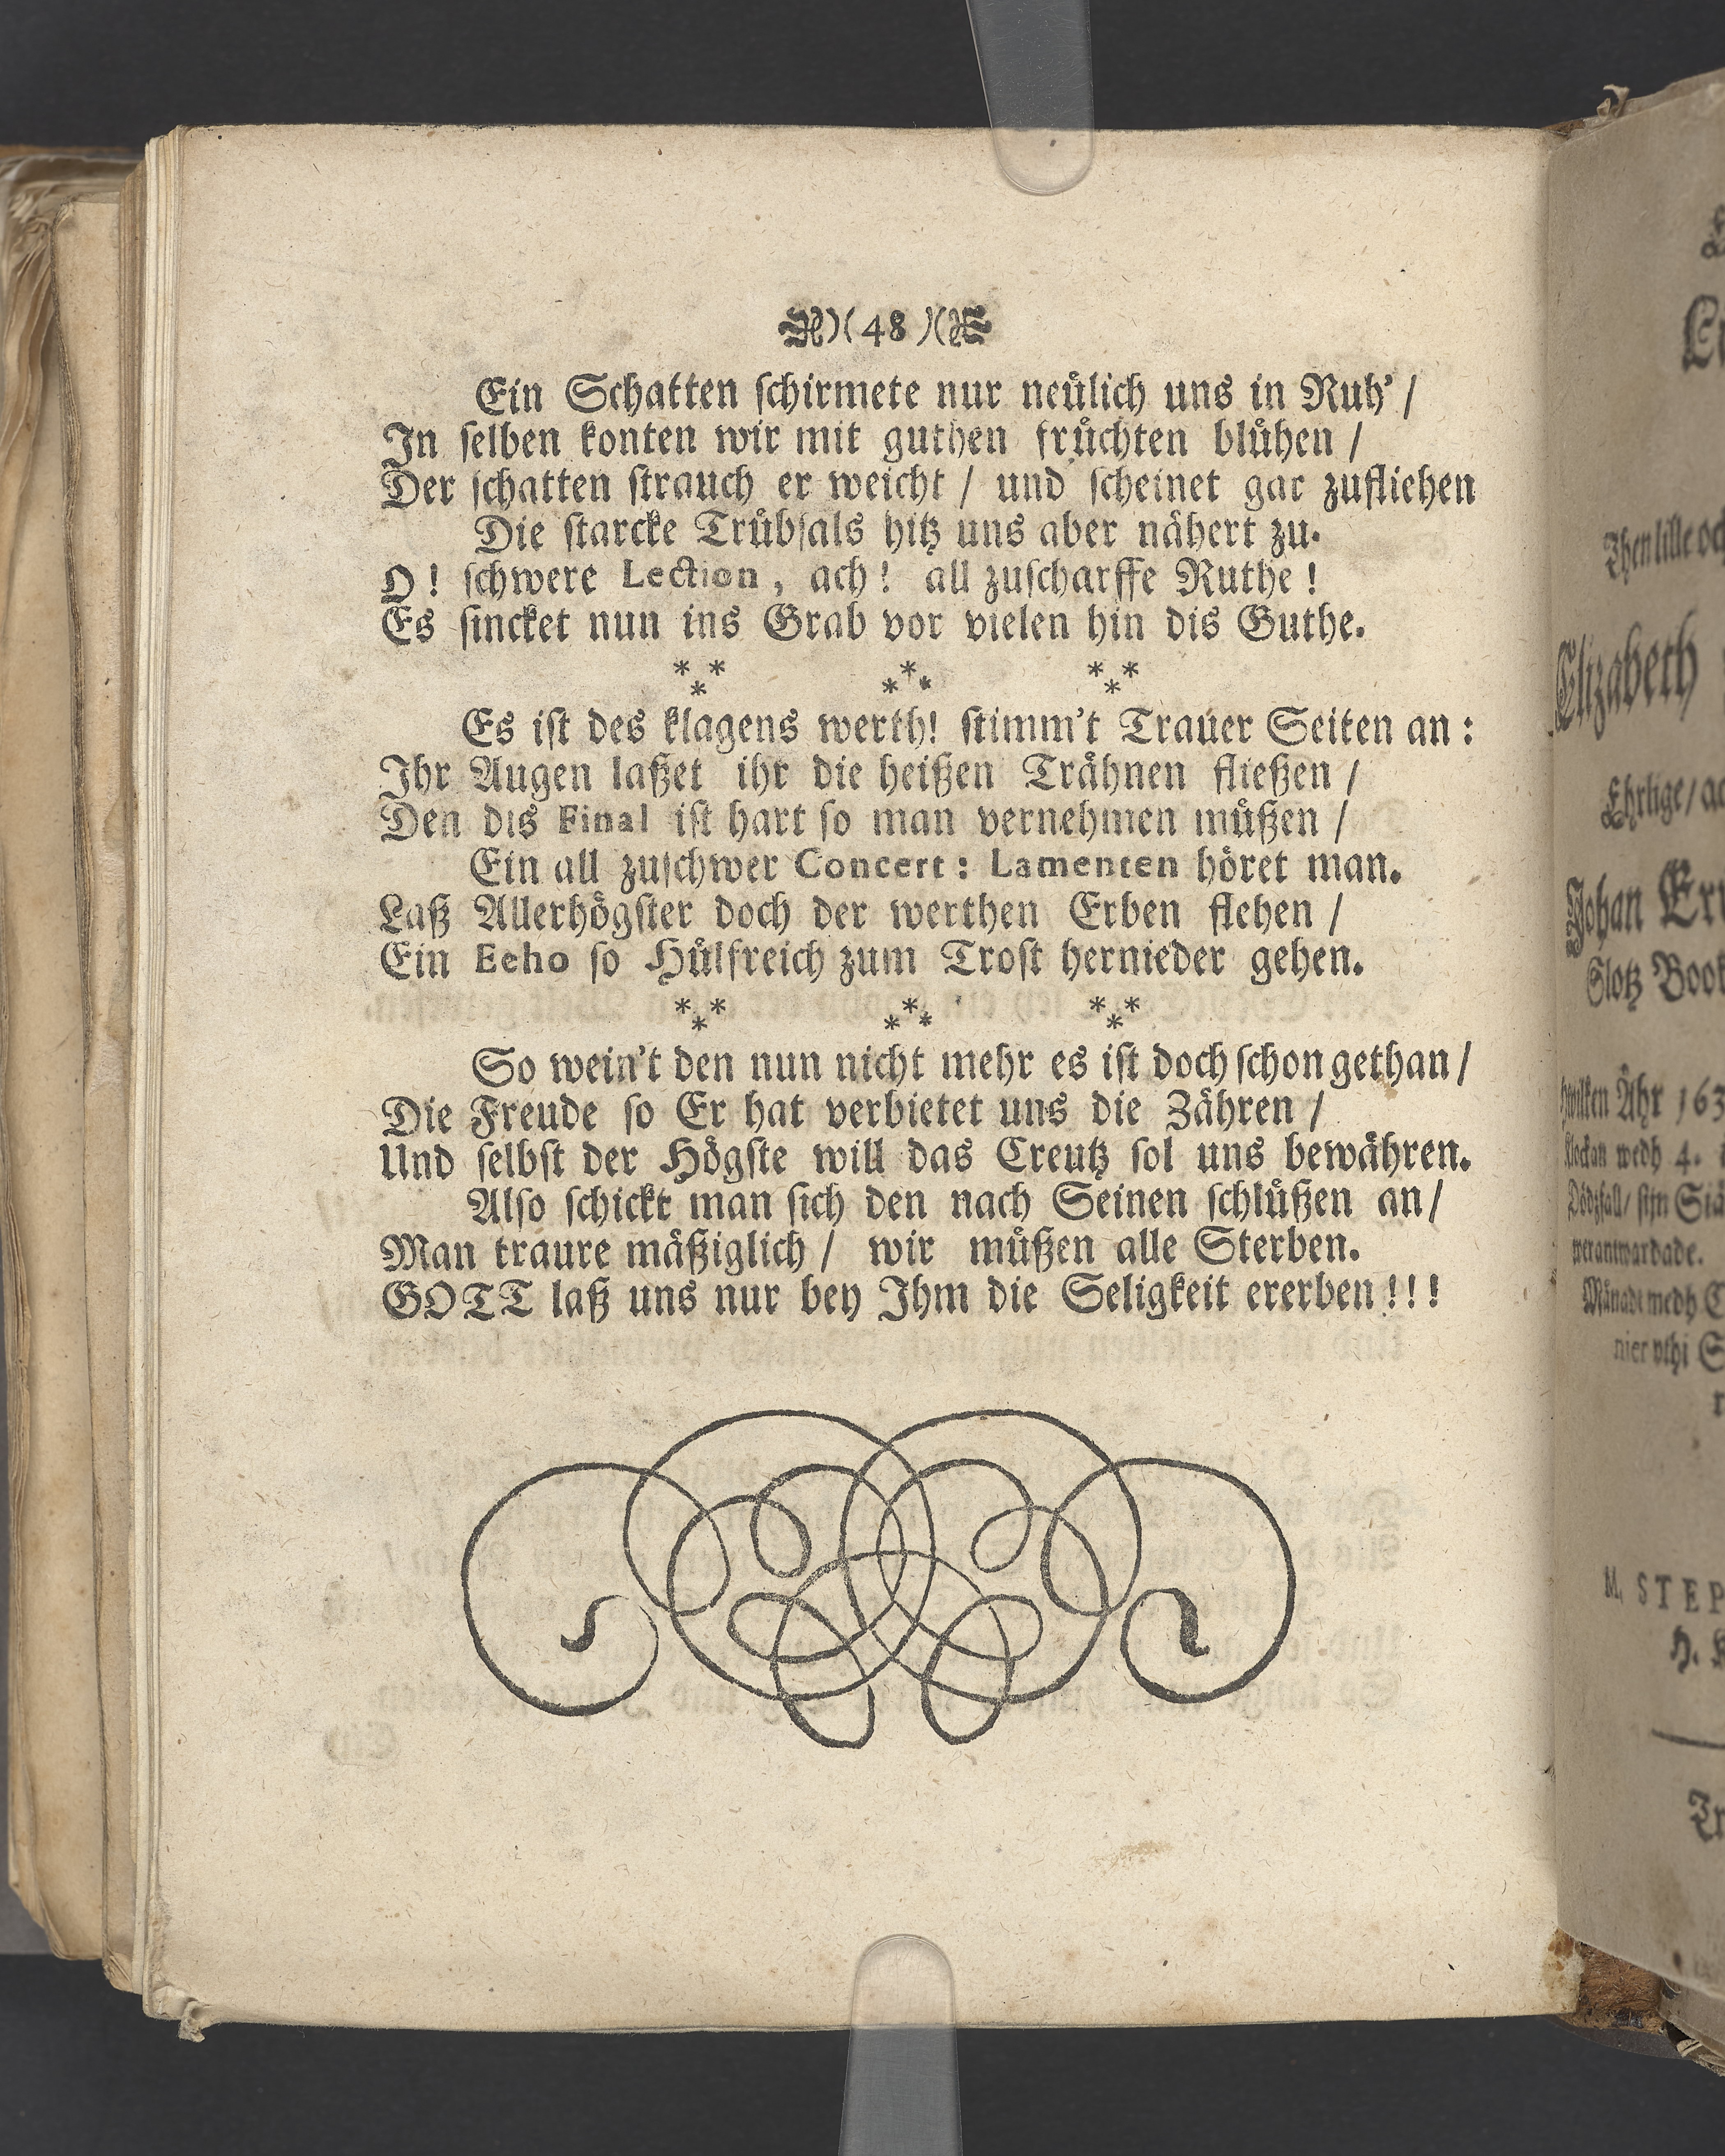 )( 48 )(
Ein Schatten ſchirmete nur neůlich uns in Ruh' /
In ſelben konten wir mit guthen frůchten blůhen /
Der ſchatten ſtrauch er weicht / und ſcheinet gar zufliehen
Die ſtarcke Trůbſals hitz uns aber nåhert zu.
O! ſchwere Lection, ach! all zuſcharffe Ruthe!
Es ſincket nun ins Grab vor vielen hin dis Guthe.
* * * * * * * * *
Es iſt des klagens werth! ſtimm't Trauer Seiten an:
Ihr Augen laßet ihr die heißen Tråhnen fließen /
Den dis Final iſt hart ſo man vernehmen můßen /
Ein all zuſchwer Concert: Lamenten höret man.
Laß Allerhögſter doch der werthen Erben flehen /
Ein Echo ſo Hůlfreich zum Troſt hernieder gehen.
* * * * * * * * *
So wein't den nun nicht mehr es iſt doch ſchon gethan /
Die Freude ſo Er hat verbietet uns die Zåhren /
Und ſelbſt der Högſte will das Creutz ſol uns bewåhren.
Alſo ſchickt man ſich den nach Seinen ſchlůßen an /
Man traure måßiglich / wir můßen alle Sterben.
GOTT laß uns nur bey Ihm die Seligkeit ererben!!!
Then lille och
Elizabeth
Ehrlige / ac
Johan
Slotz Book
hwilken Åhr 163
klockan wedh 4.
verantwardade.
Månadt medh
nier vthi
M. STEP